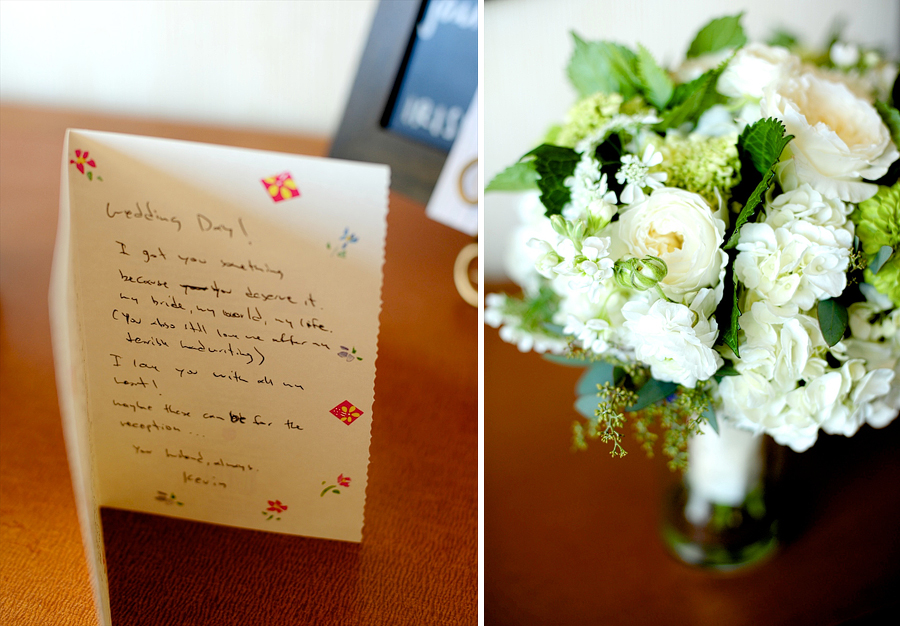 Wedding Day!
I got you something
because you deserve it.
my bride, my world, my life.
(You also still love me after my
terrible handwriting)
I love you with all my
heart!
maybe these can be for the
reception...
Your husband, always.
Kevin
IRIS